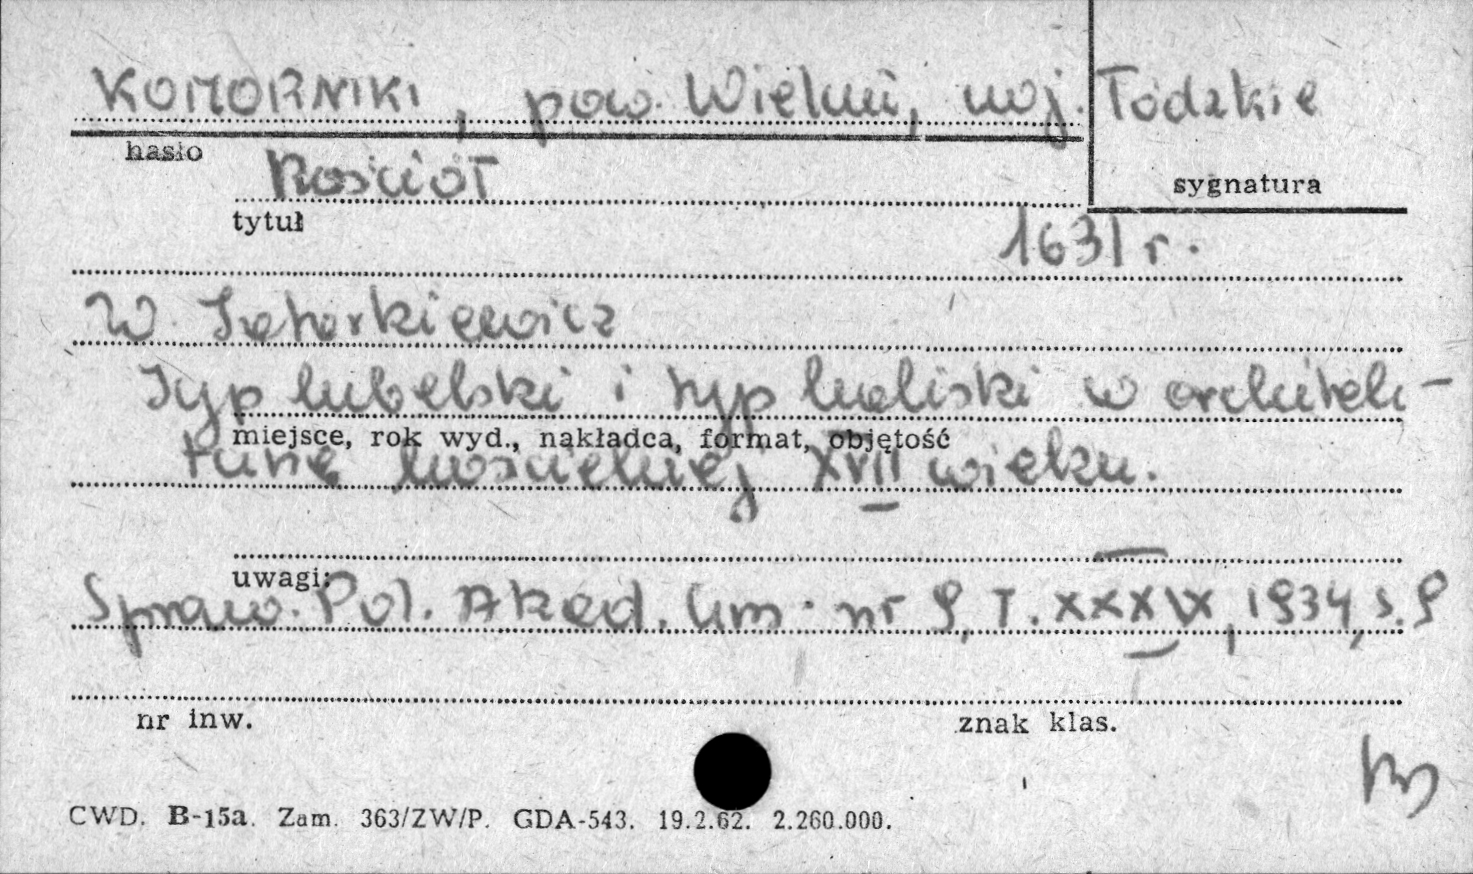 KOMORNIKI, pow. Wieluń, woj. Łódzkie
hasło
Kościół
sygnatura
tytuł
1631 r.
W. Tatarkiewicz
Typ lubelski i typ kaliski w architek-
miejsce, rok wyd., nakładca, format, objętość
turze kościelnej XVII wieku.
uwagi:
Spraw. Pol. Akad. Um. nr 9, T. XXXIX, 1934, s. 9
nr inw.
znak klas.
CWD. B-15a. Zam. 363/ZW/P. GDA-543. 19.2.62. 2.260.000.